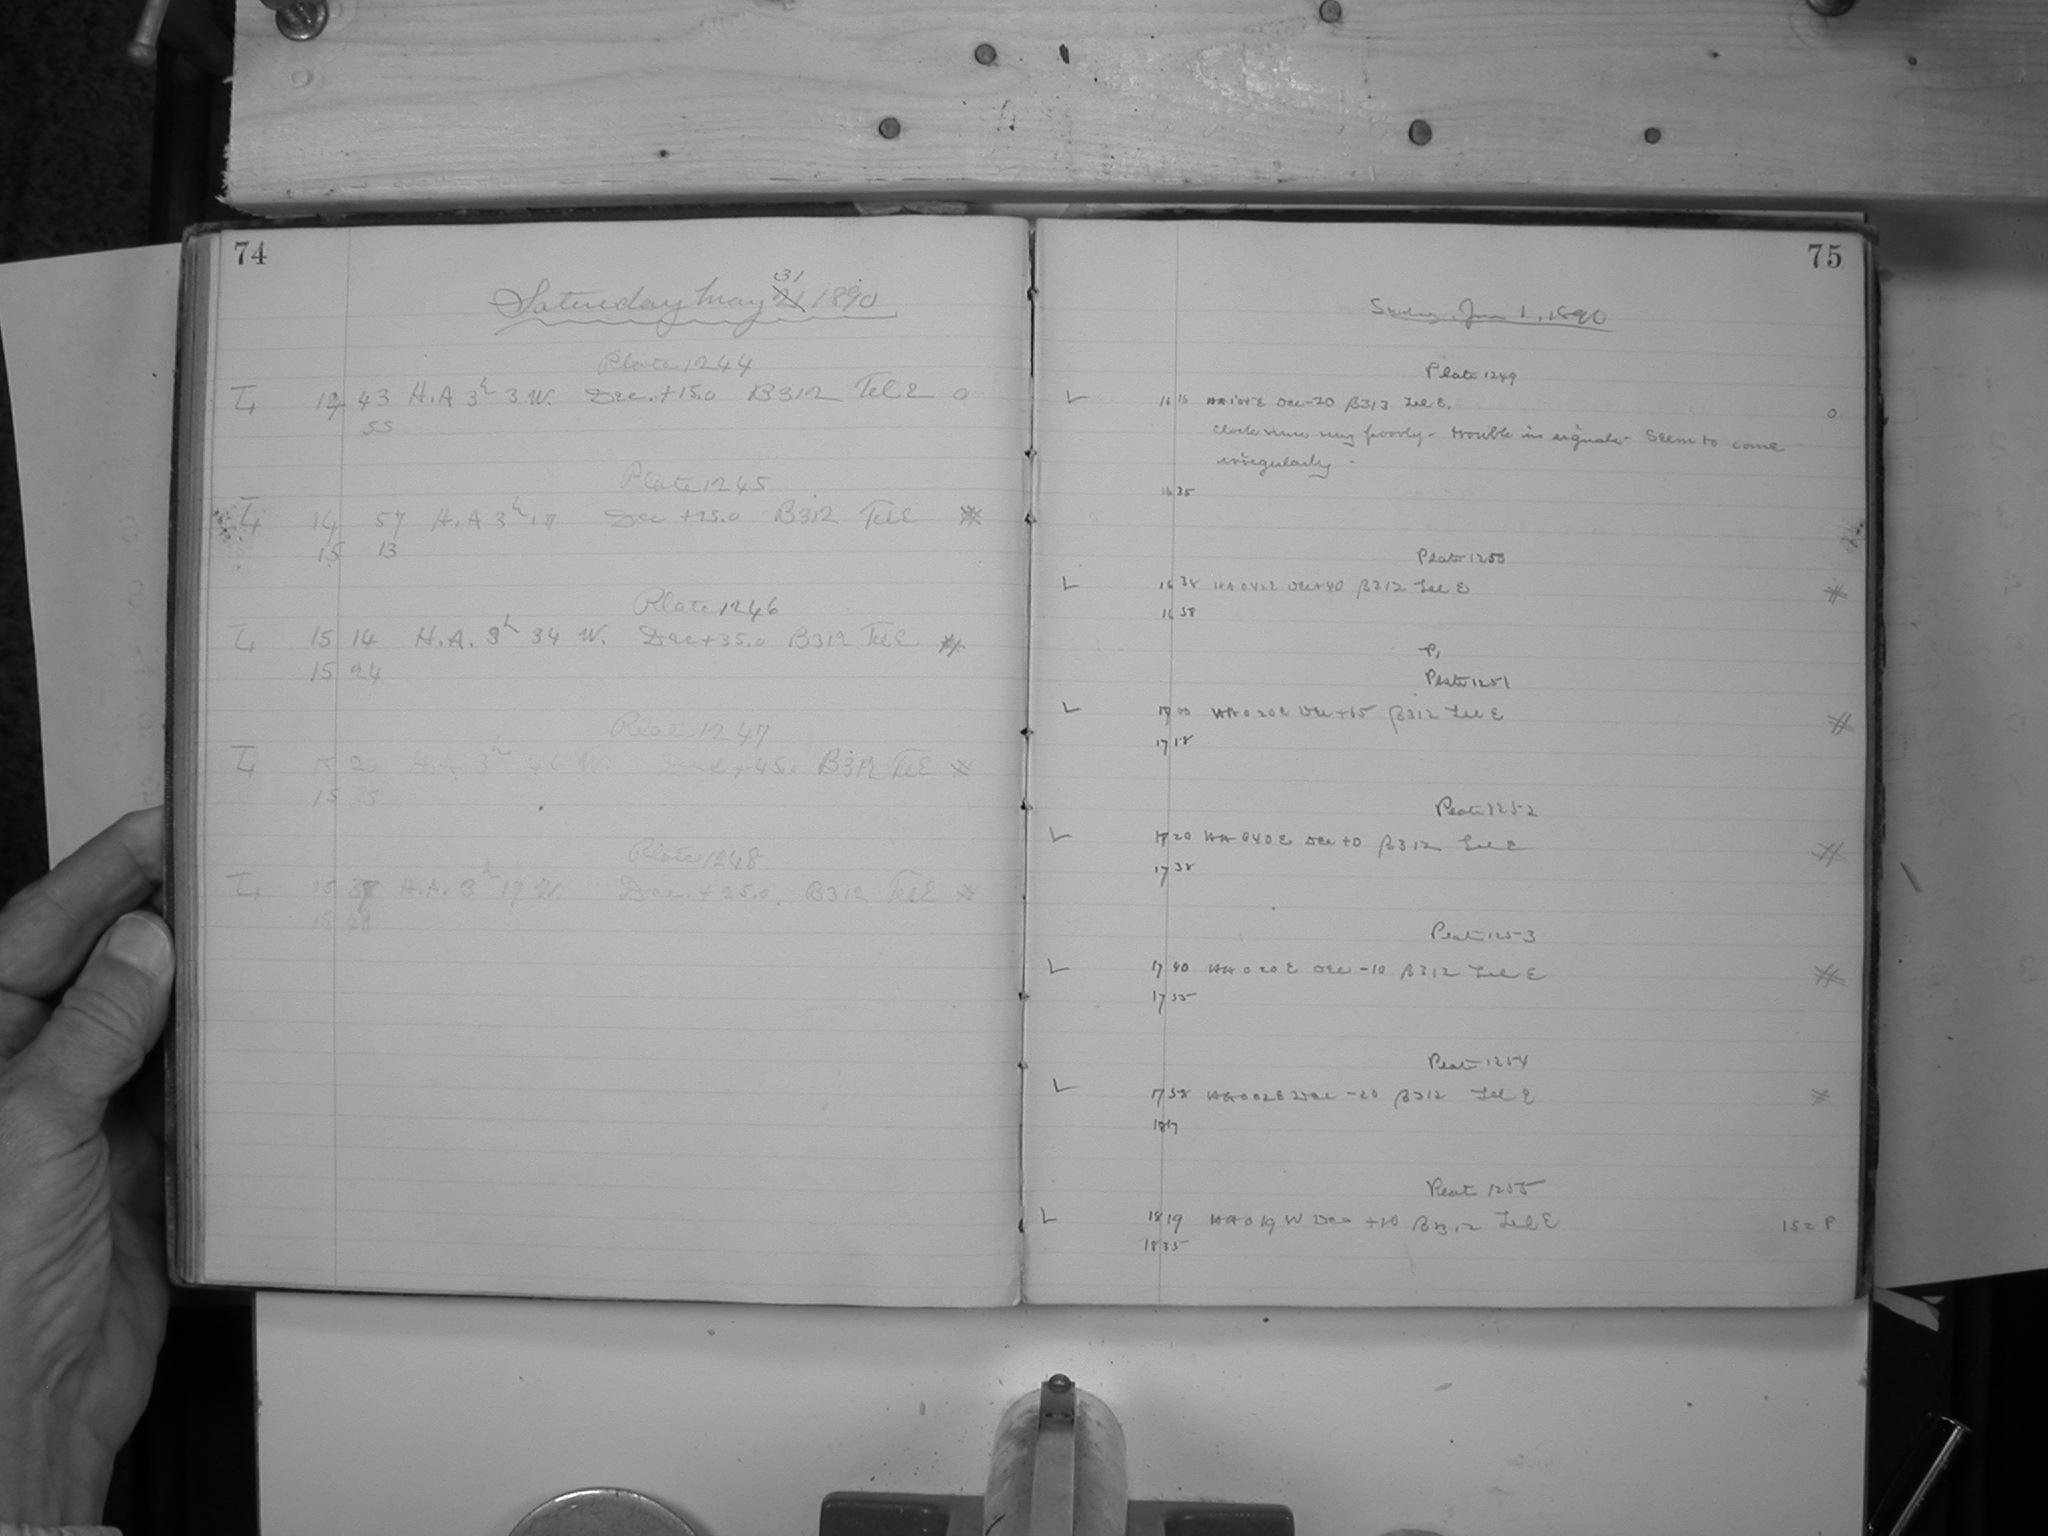 74
Saturday May 31 1890
Plate 1244
43 H.A 3h 3 W. Dec. +15.0 B312 Tel E O
55
Plate 1245
14 57 H.A 3h 17 Dec +25.0 B312 Tel E
15 13
Plate 1246
15 14 H.A. 3h 34 W. Dec +35.0 B312 Tel E
15 24
Plate 1247
H.A 3h 46 W. Dec +45.0 B312 Tel E
15 35
Plate 1248
15 H.A. 3h 17 W. Dec. +25.0. B312 Tel E
15 48
75
Sunday, June 1, 1890
Plate 1249
16 16 Dec -20 B313 Tel E. O
clock runs very poorly - trouble in signals - Seem to come
irregularly -
16 35
Plate 1250
L 16 38 Dec +40 B312 Tel E
16 58
P,
Plate 1251
L 17 00 HA 0 20 E Dec +15 B312 Tel E
17 18
Plate 1252
L 20 HA 0 40 E Dec +0 B312 Tel E
17 38
Plate 1253
L 17 40 HA 0 20 E Dec -10 B312 Tel E
17 55
Plate 1254
L 17 58 HA 0 02 E Dec -20 B312 Tel E
18 17
Plate 1255
L 18 19 HA 0 19 W Dec +10 B312 Tel E
18 35